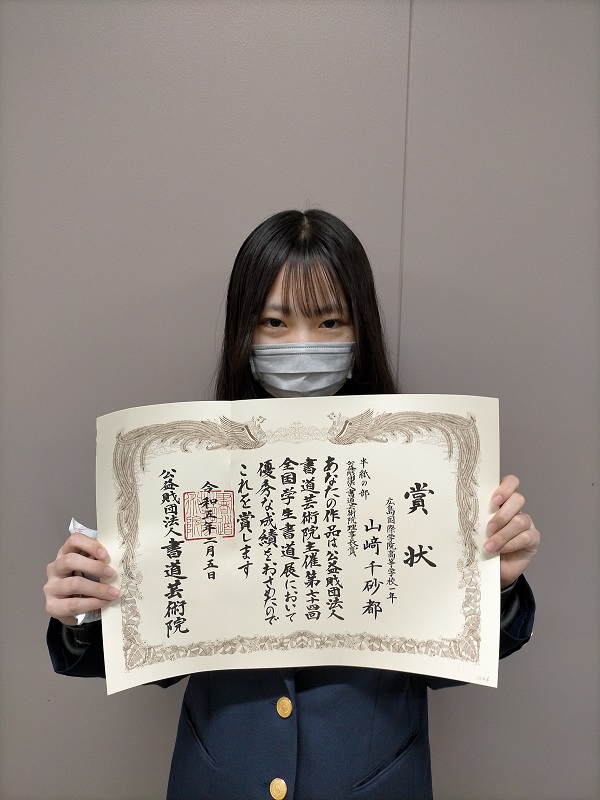 賞状
広島国際学院高等学校一年
山﨑千砂都
半紙の部
公益財団法人書道芸術院理事長賞
あなたの作品は公益財団法人
書道芸術院主催第七十四回
全国学生書道展において
優秀な成績をおさめたので
これを賞します
令和五年一月五日
公益財団法人書道芸術院